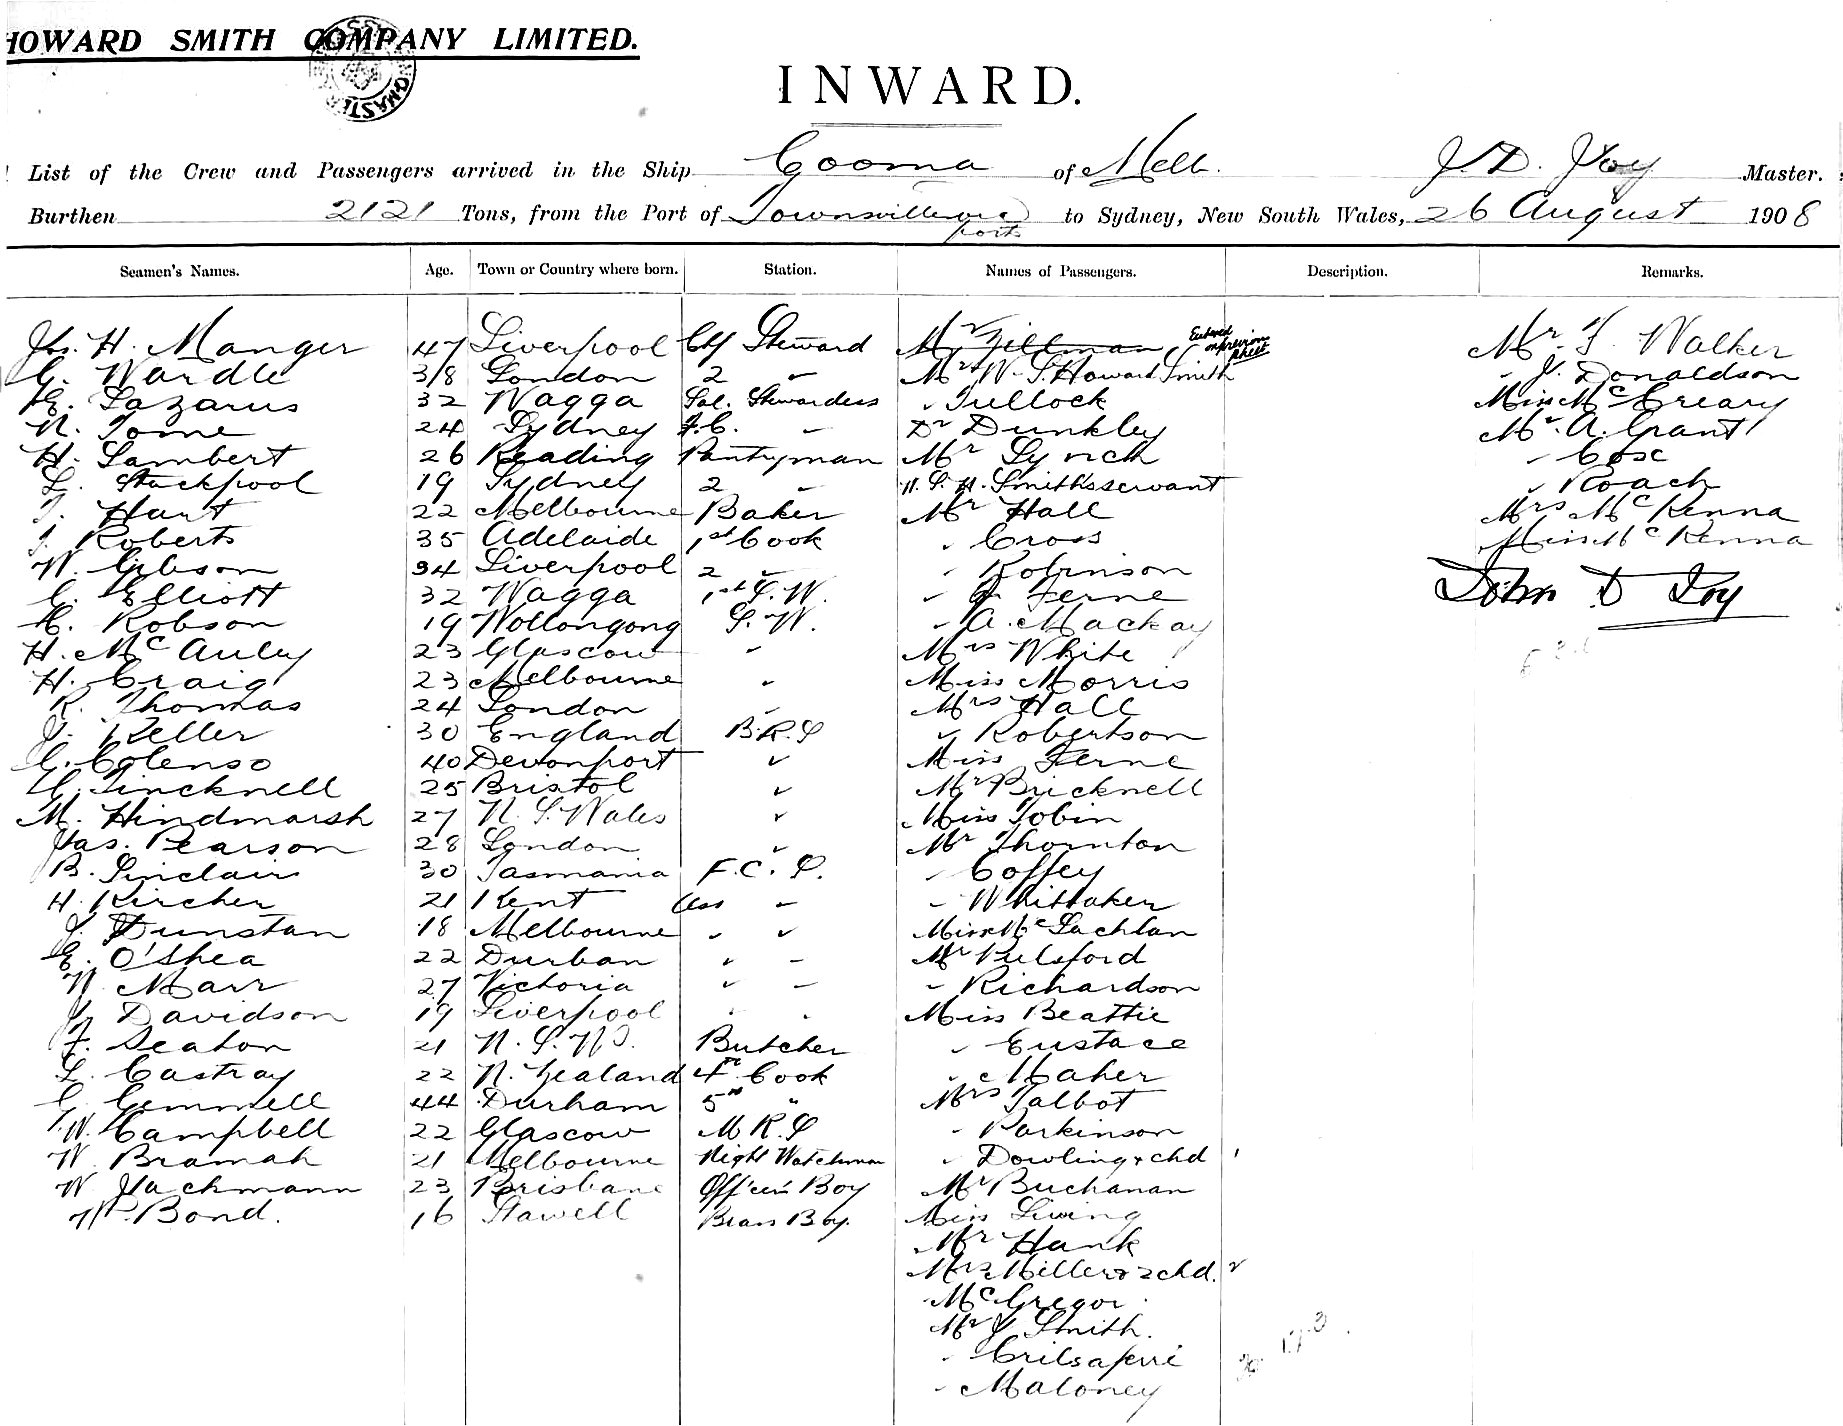 HOWARD SMITH COMPANY LIMITED.
INWARD.
List of the Crew and Passengers arrived in the Ship Cooma of Melb. J. D. Joy Master.
Burthen 2121 Tons, from the Port of Townsville via ports to Sydney, New South Wales, 26 August 1908
Seamen's Names. Age. Town or Country where born. Station. Names of Passengers. Description. Remarks.
Jas. H. Manger 47 Liverpool Chf Steward Mr Gillman Entered on previous sheet Mr. T. Walker
C. Wardle 38 London 2 " Mrs W. S. Howard Smith " J. Donaldson
E. Lazarus 32 Wagga Sal. Stewardess " Tullock Miss McCreary
N. Tome 24 Sydney F.C. " Dr Dunkley Mr. A. Grant
H. Lambert 26 Reading Pantryman Mr Lynch " Cox
L. Stackpool 19 Sydney 2 " H. S. Smiths servant " Roach
T. Hart 22 Melbourne Baker Mr Hall Mrs McKenna
J. Roberts 35 Adelaide 1st Cook " Cross Miss McKenna
W. Gibson 34 Liverpool 2 " " Robinson John D Joy
C. Elliott 32 Wagga 1st S.W. " J Ferne
H. Robson 19 Wollongong S.W. " A. Mackay
H. McAuley 23 Glascow " Mrs White
H. Craig 23 Melbourne " Miss Morris
R. Thomas 24 London " Mrs Hall
J. Keller 30 England B.R.S " Robertson
C. Colenso 40 Devonport " Miss Ferne
C. Tincknell 25 Bristol " Mr Bricknell
M. Hindmarsh 27 N. S. Wales " Miss Tobin
Jas. Pearson 28 London " Mr Thornton
B. Sinclair 30 Tasmania F.C. S. " Coffey
H. Kircher 21 Kent Ass " " Whittaker
J. Dunstan 18 Melbourne " " Miss McLachlan
E. O'Shea 22 Durban " " Mr Pulsford
W. Marr 27 Victoria " " " Richardson
J. Davidson 19 Liverpool " " Miss Beattie
F. Seaton 21 N. S. W. Butcher " Eustace
L. Castray 22 N. Zealand 4th Cook " Maher
C. Gemmell 44 Durham 5th " Mrs Talbot
W. Campbell 22 Glascow M R S " Parkinson
W. Bramah 21 Melbourne Night Watchman " Dowling & chd 1
W. Jackmann 23 Brisbane Officers Boy Mr Buchanan
W. Bond. 16 Stawell Brass Boy. Miss Living
Mr Hank
Mrs Miller & 2 chd. 2
McGregor
Mr J Smith.
" Maloney